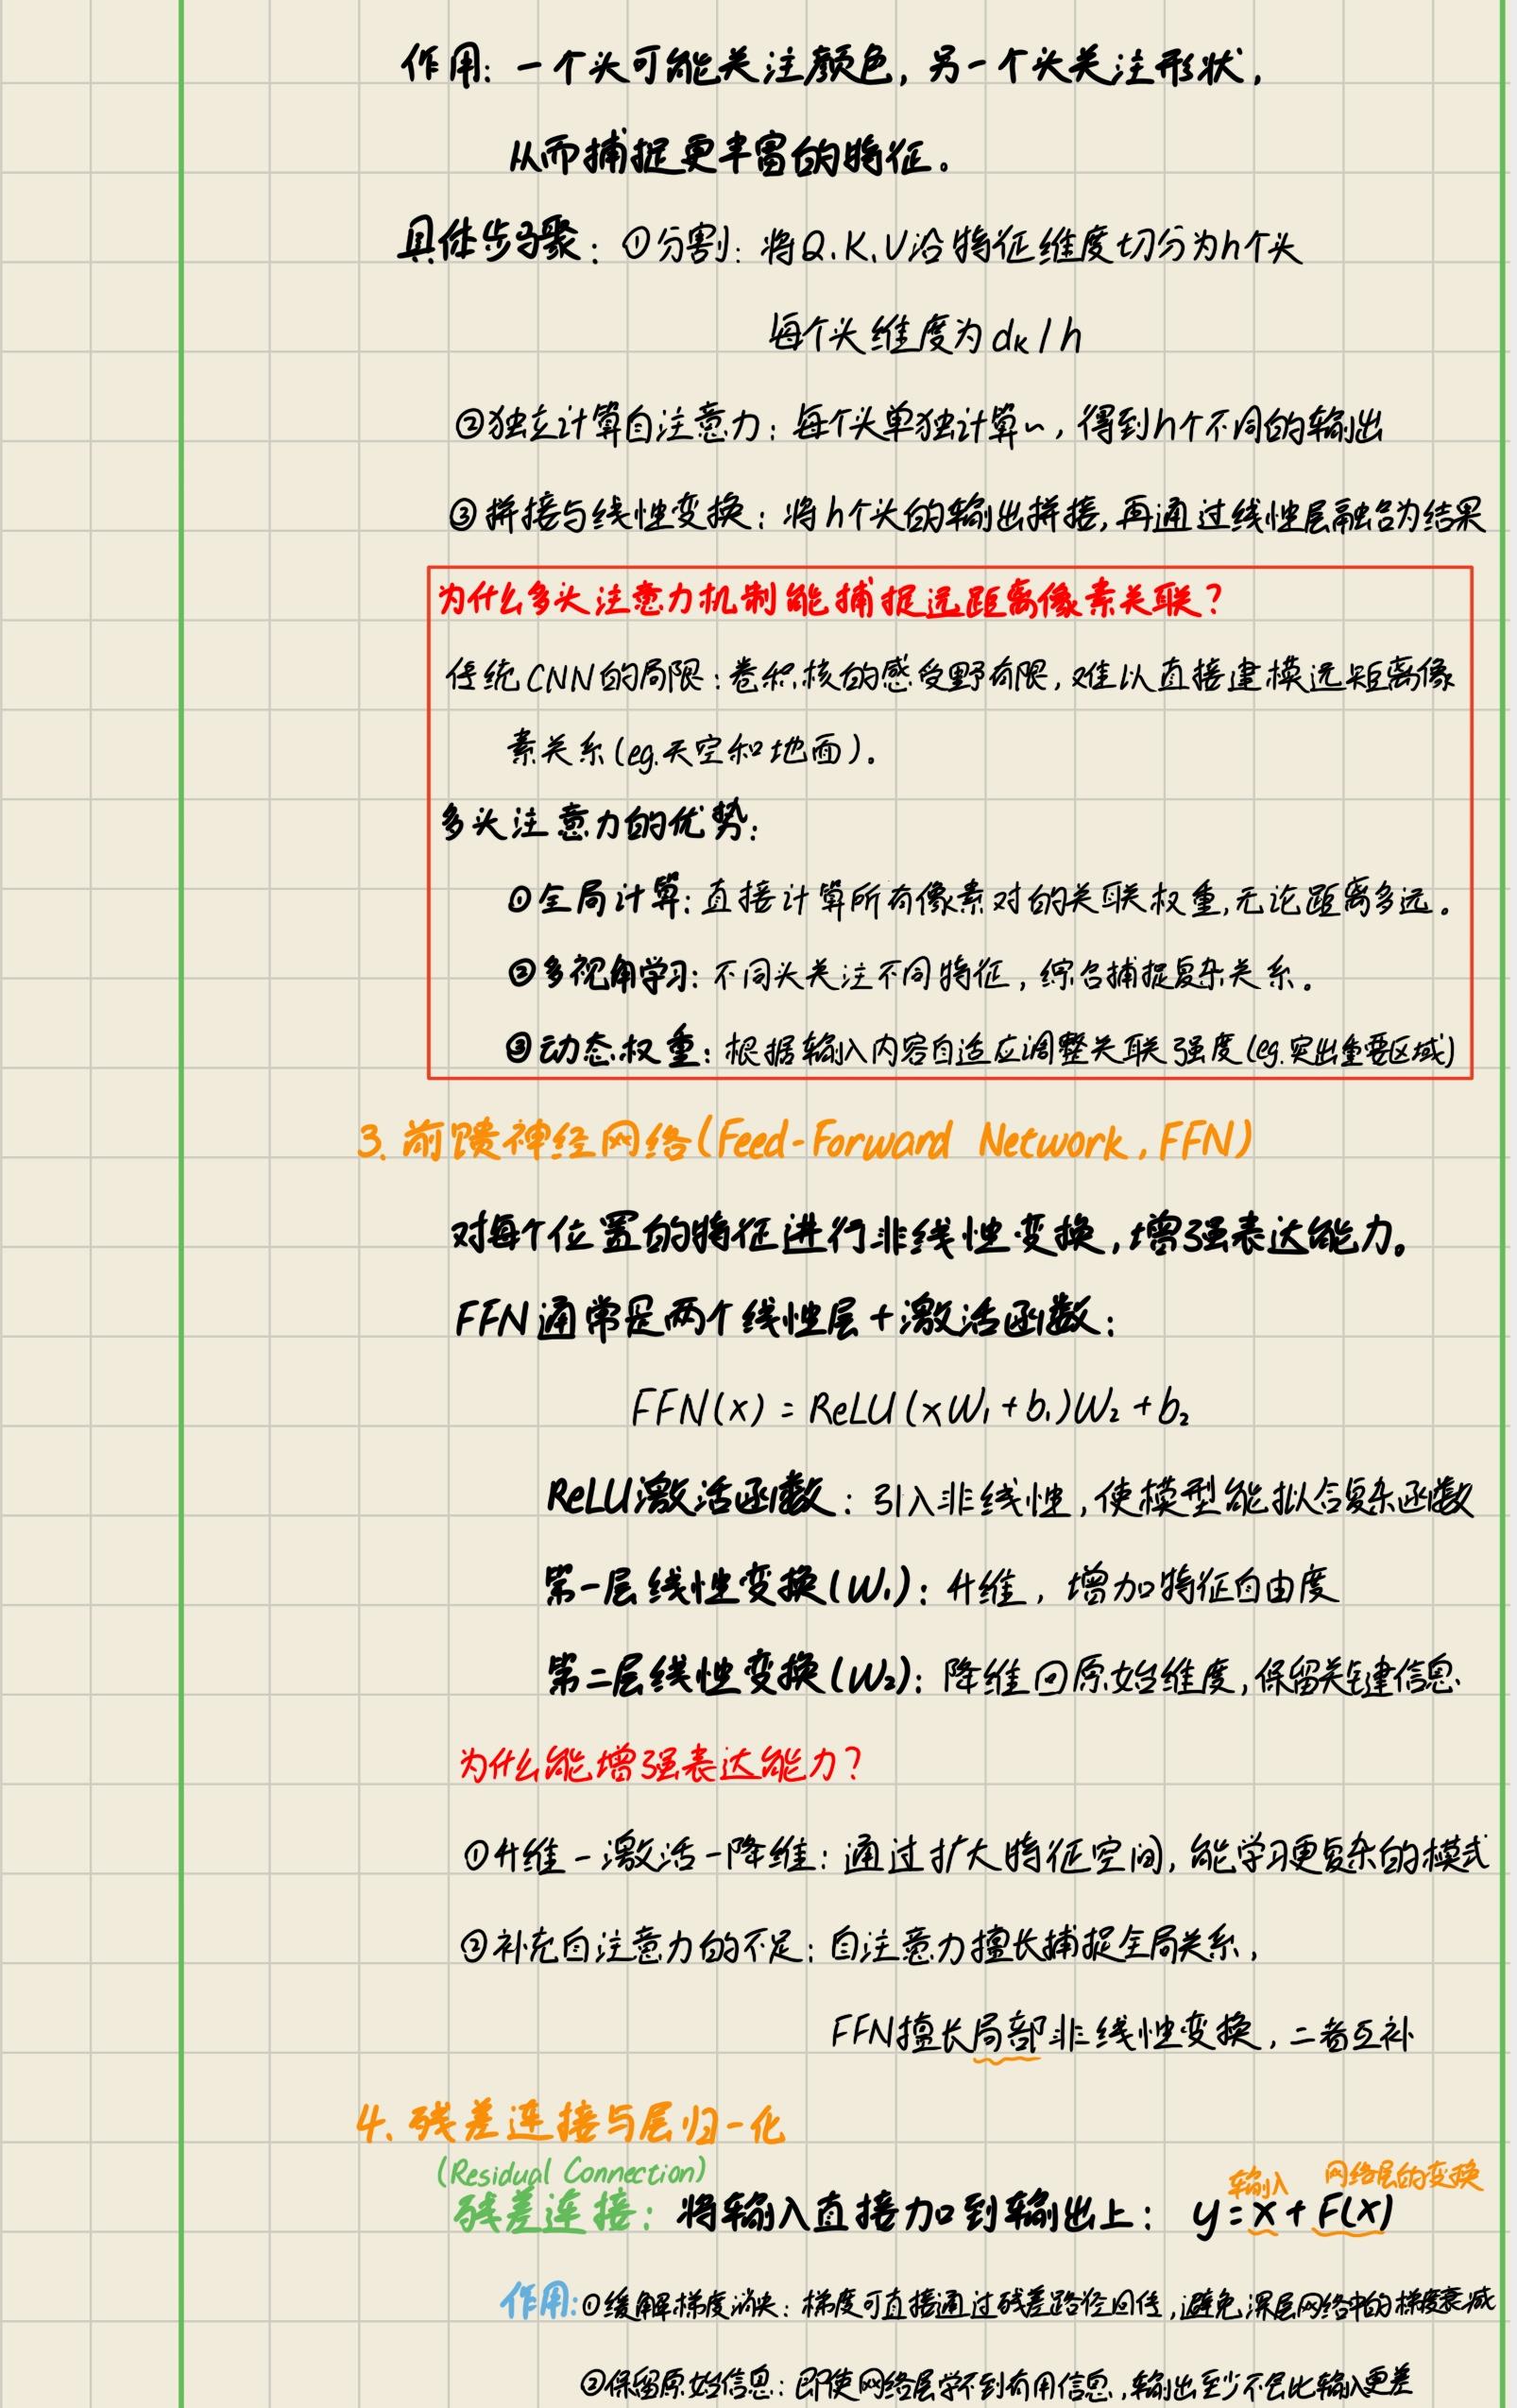 作用：一个头可能关注颜色，另一个头关注形状，
从而捕捉更丰富的特征。
具体步骤：①分割：将Q、K、V沿特征维度切分为h个头
每个头维度为dk/h
②独立计算自注意力：每个头单独计算~，得到h个不同的输出
③拼接与线性变换：将h个头的输出拼接，再通过线性层融合为结果
为什么多头注意力机制能捕捉远距离像素关联？
传统CNN的局限：卷积核的感受野有限，难以直接建模远距离像
素关系(eg.天空和地面)。
多头注意力的优势：
①全局计算：直接计算所有像素对的关联权重，无论距离多远。
②多视角学习：不同头关注不同特征，综合捕捉复杂关系。
③动态权重：根据输入内容自适应调整关联强度(eg.突出重要区域)
3.前馈神经网络(Feed-Forward Network,FFN)
对每个位置的特征进行非线性变换，增强表达能力。
FFN通常是两个线性层+激活函数：
FFN(x) = ReLU(xW₁+b₁)W₂+b₂
ReLU激活函数：引入非线性，使模型能拟合复杂函数
第一层线性变换(W₁)：升维，增加特征自由度
第二层线性变换(W₂)：降维回原始维度，保留关键信息
为什么能增强表达能力？
①升维-激活-降维：通过扩大特征空间，能学习更复杂的模式
②补充自注意力的不足：自注意力擅长捕捉全局关系，
FFN擅长局部非线性变换，二者互补
4.残差连接与层归一化
(Residual Connection)
输入 网络层的变换
残差连接：将输入直接加到输出上：y=x+F(x)
作用：①缓解梯度消失：梯度可直接通过残差路径回传，避免深层网络中的梯度衰减
②保留原始信息：即使网络层学不到有用信息，输出至少不会比输入更差